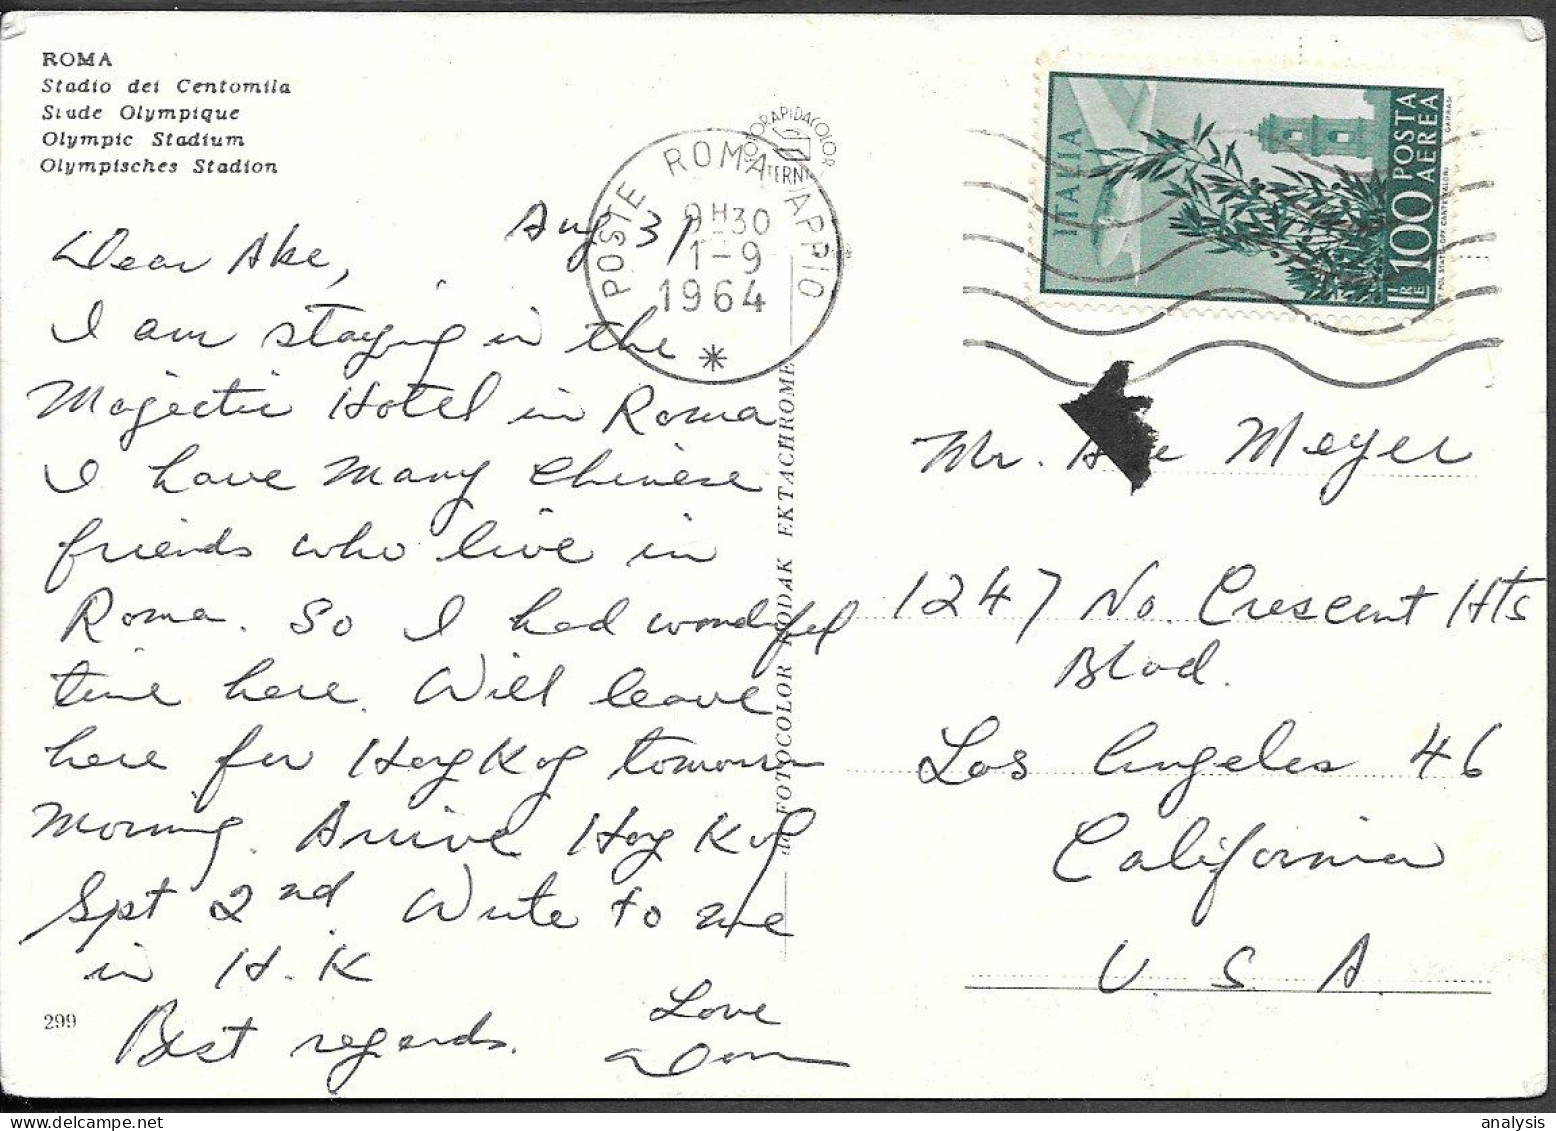 ROMA
Stadio dei Centomila
Stade Olympique
Olympic Stadium
Olympisches Stadion
Aug 31
Dear Abe,
I am staying in the
Majectic Hotel in Roma
I have many Chinese
friends who live in
Roma. So I had wonderful
time here. Will leave
here for Hong Kog tomorrow
morning. Arrive Hong Kog
Spt 2nd Write to me
in H.K
Best regards.
Love
299
FOTORAPIDACOLOR
TERNI
POSTE ROMA APPIO
9H30
1-9
1964
da FOTOCOLOR KODAK EKTACHROME
ITALIA
POSTA AEREA
LIRE 100
POL. STATO OFF. CARTE VALORI
Mr. Abe Meyer
1247 No. Crescent Hts
Blvd.
Los Angeles 46
California
U. S. A.
analysis